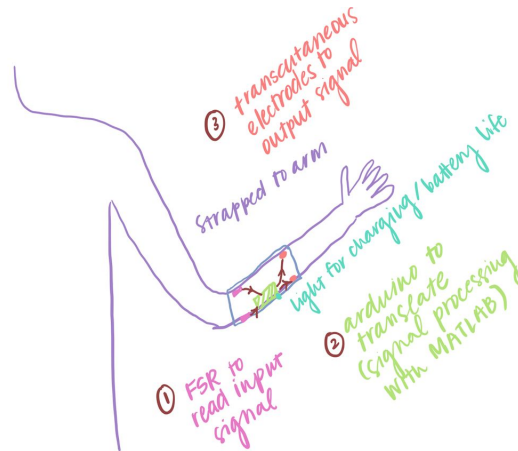 ③ transcutaneous
electrodes to
output signal
strapped to arm
light for charging/battery life
② arduino to
translate
(signal processing
with MATLAB)
① FSR to
read input
signal